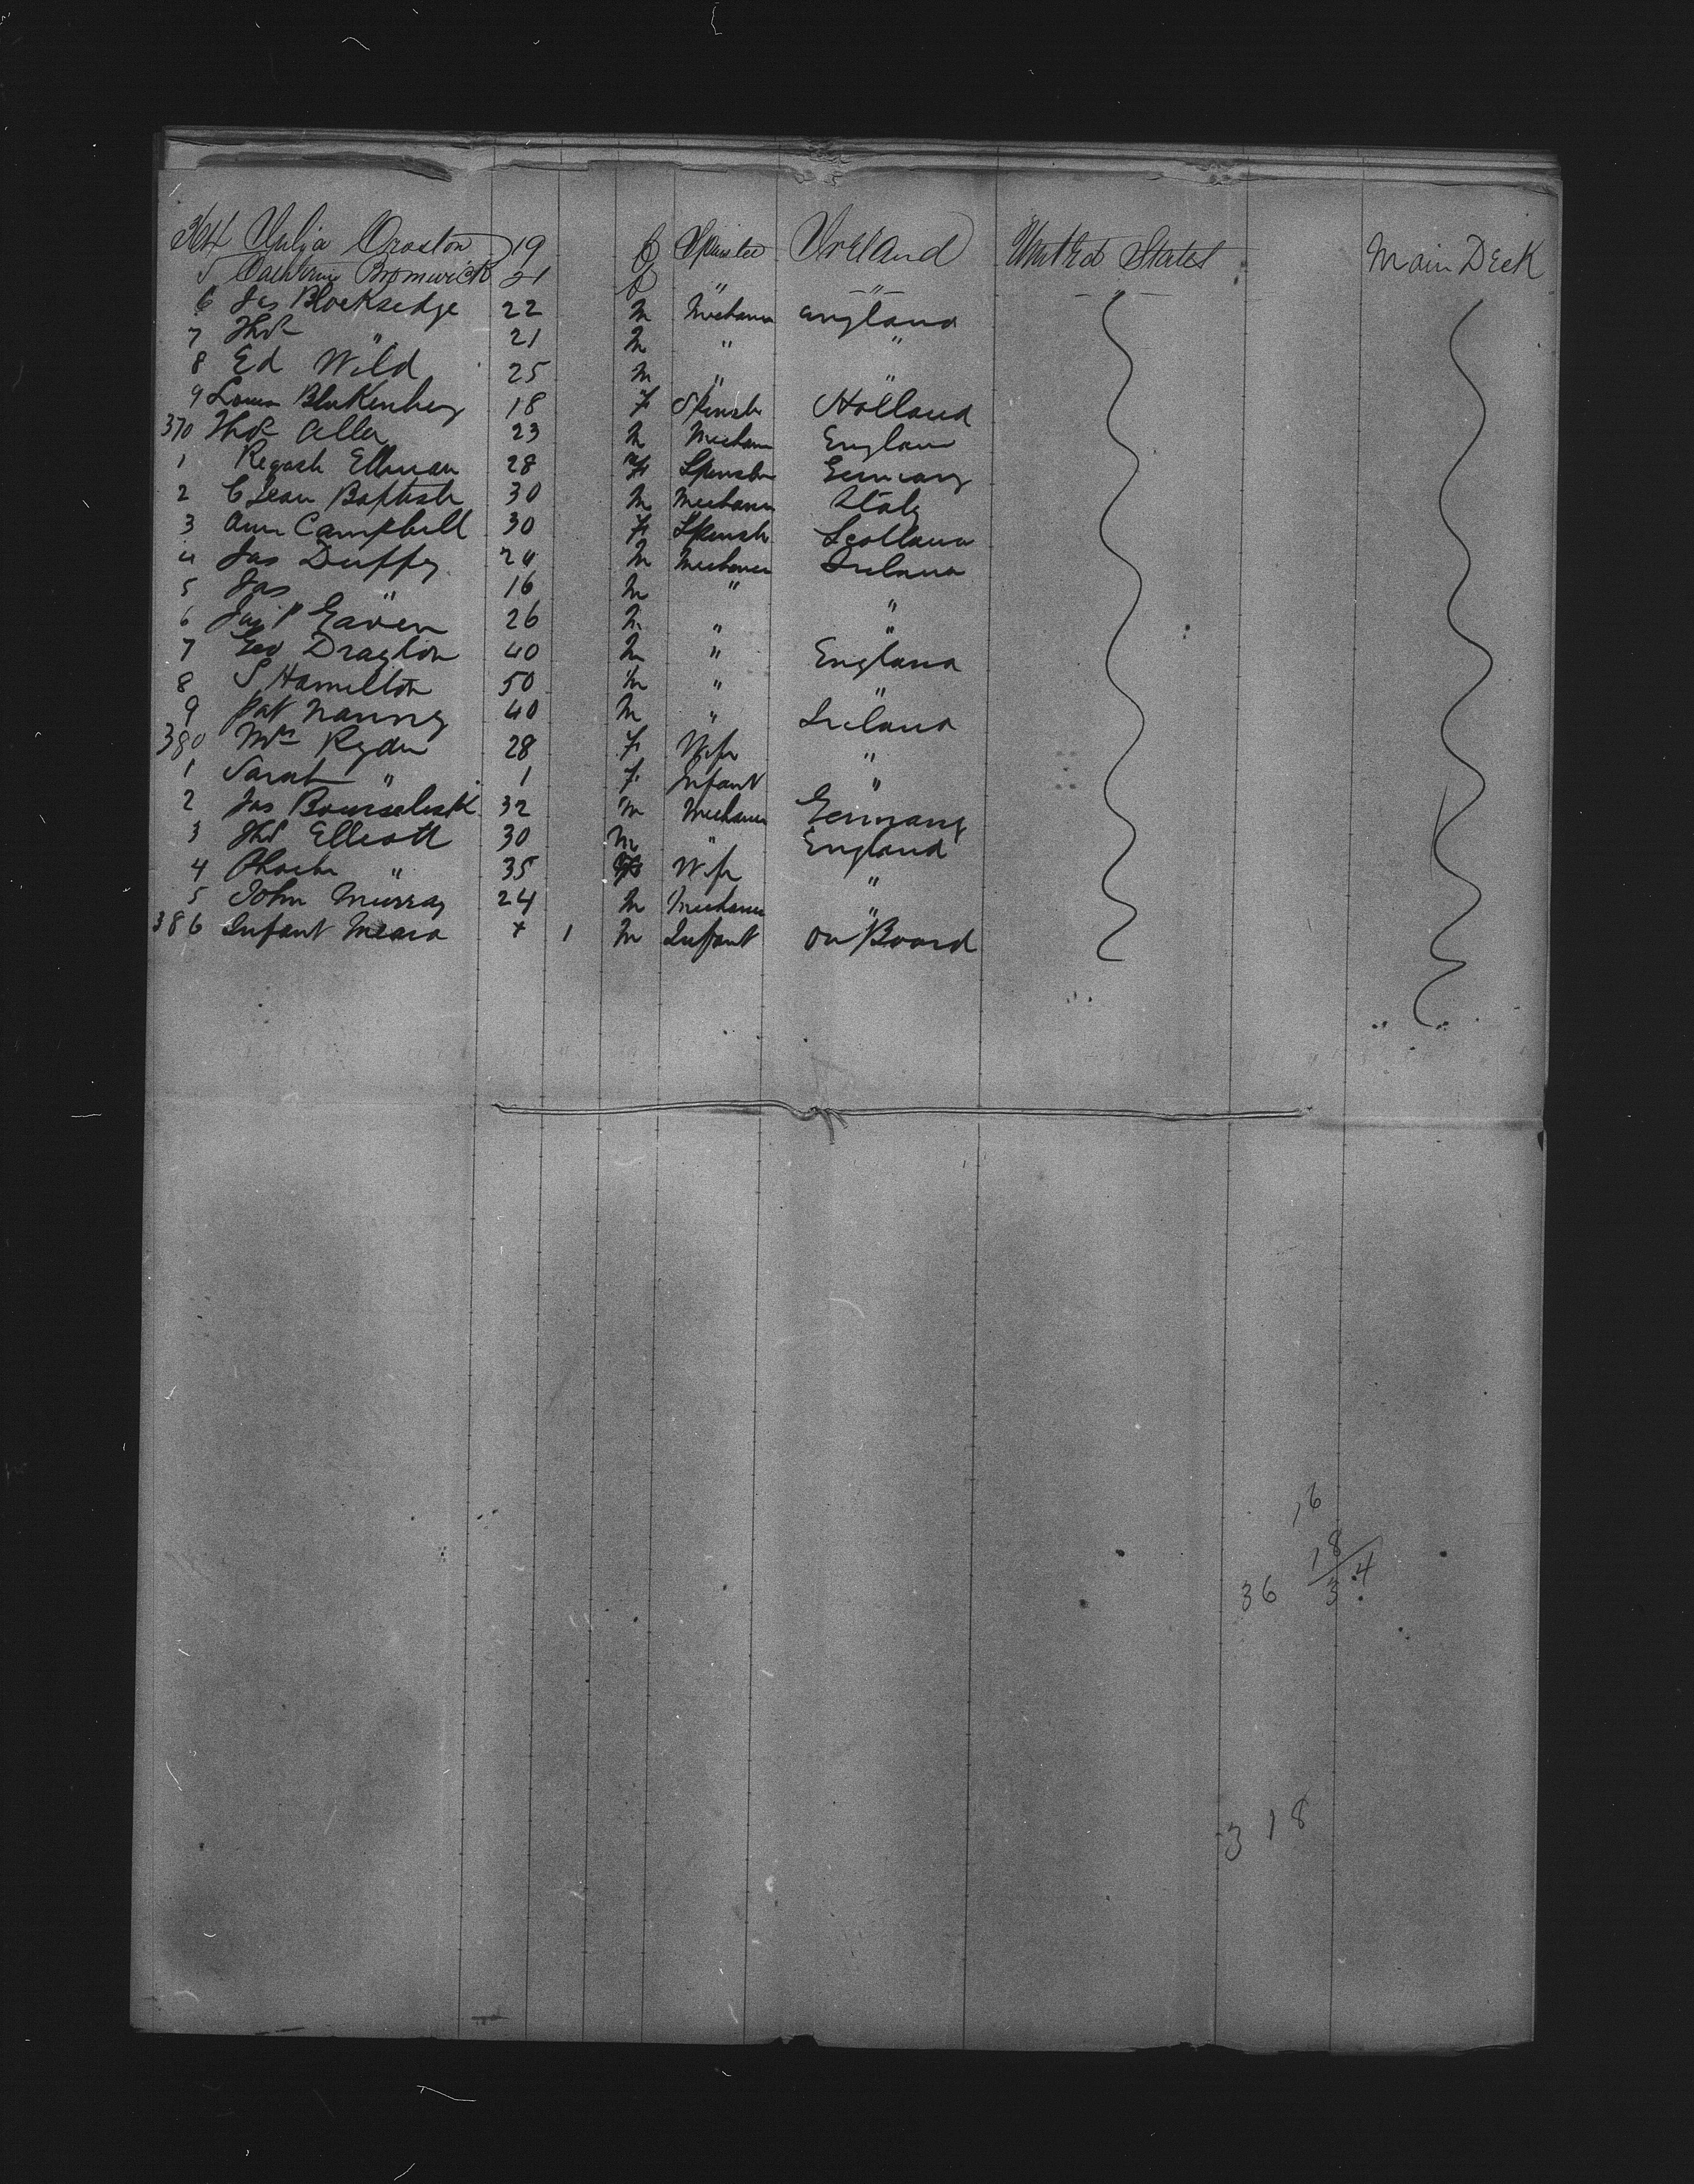 364 Julja Croston 19 f Spinster Ireland United States Main Deck
5 Catherine Bromwick 21 f " " "
6 Jas Blocksedge 22 M Mechanic England
7 Thos " 21 M " "
8 Ed Wild 25 M " "
9 Louisa Blakenberg 18 F Spinstr Holland
370 Thos Aller 23 M Mechan England
1 Ellman 28 F Spinster Germany
2 C Jean Baptiste 30 M Mechanic Italy
3 Ann Campbell 30 F Spinstr Scotland
4 Jas Duffy 24 M Mechanic Ireland
5 Jas " 16 M " "
6 Jas P Gaven 26 M " "
7 Geo Draylon 40 M " England
8 S Hamilton 50 M " "
9 Pat Nanny 40 M " Ireland
380 Mrs Ryder 28 F Wife "
1 Sarah " 1 F Infant "
2 Jas 32 M Mechanic Germany
3 Thos Elliott 30 M " England
4 Phoebe " 35 F Wife "
5 John Murray 24 M Mechanic "
386 Infant Meara + 1 M Infant on Board
16
18
36 34
318